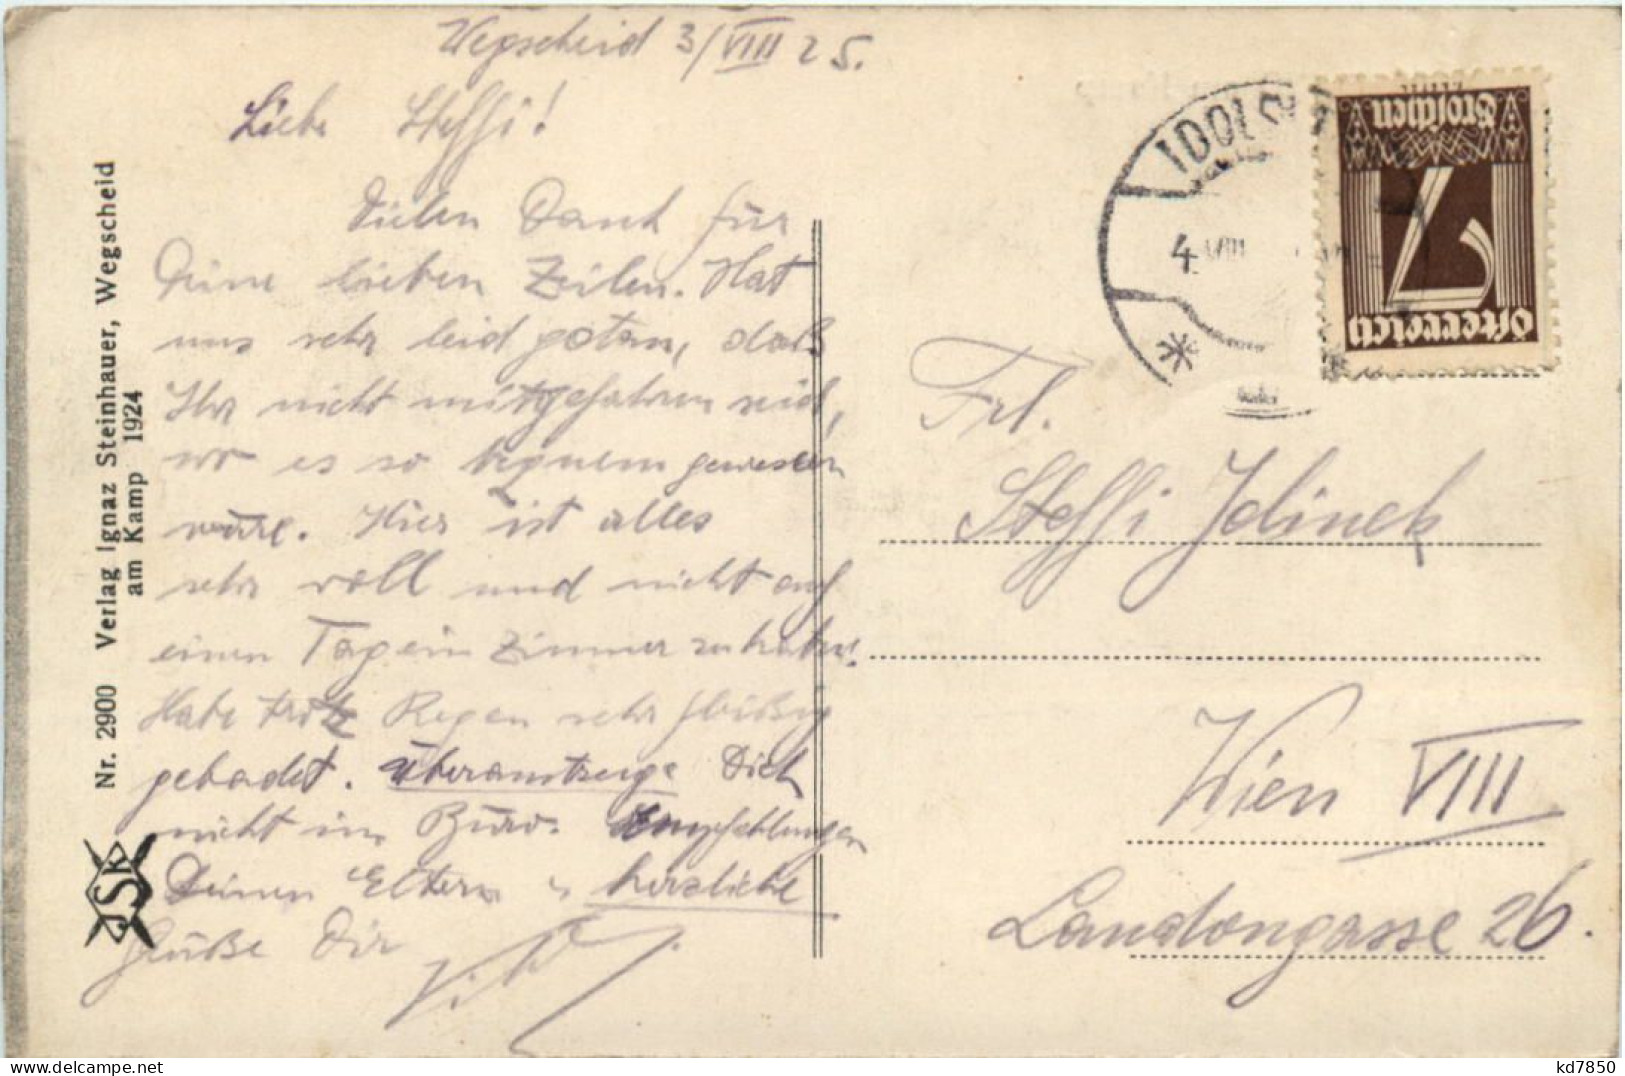 Wegscheid 3/VIII 25.
Liebe Steffi!
Vielen Dank für
Deine lieben Zeilen. Hat
uns sehr leid getan, daß
Ihr nicht mitgefahren seid,
wo es so bequem gewesen
wäre. Hier ist alles
sehr voll und nicht auf
einen Tag ein Zimmer zu haben.
Habe trotz Regen sehr fleißig
gebadet. Überanstrenge Dich
nicht im Büro. Empfehlungen
Deinen Eltern u. herzliche
Grüße Dir
Nr. 2900 Verlag Ignaz Steinhauer, Wegscheid
am Kamp 1924
JSK
IDOLS
4 VIII
Groschen
7
Österreich
Frl.
Steffi Jelinek
Wien VIII
Laudongasse 26.
kd7850